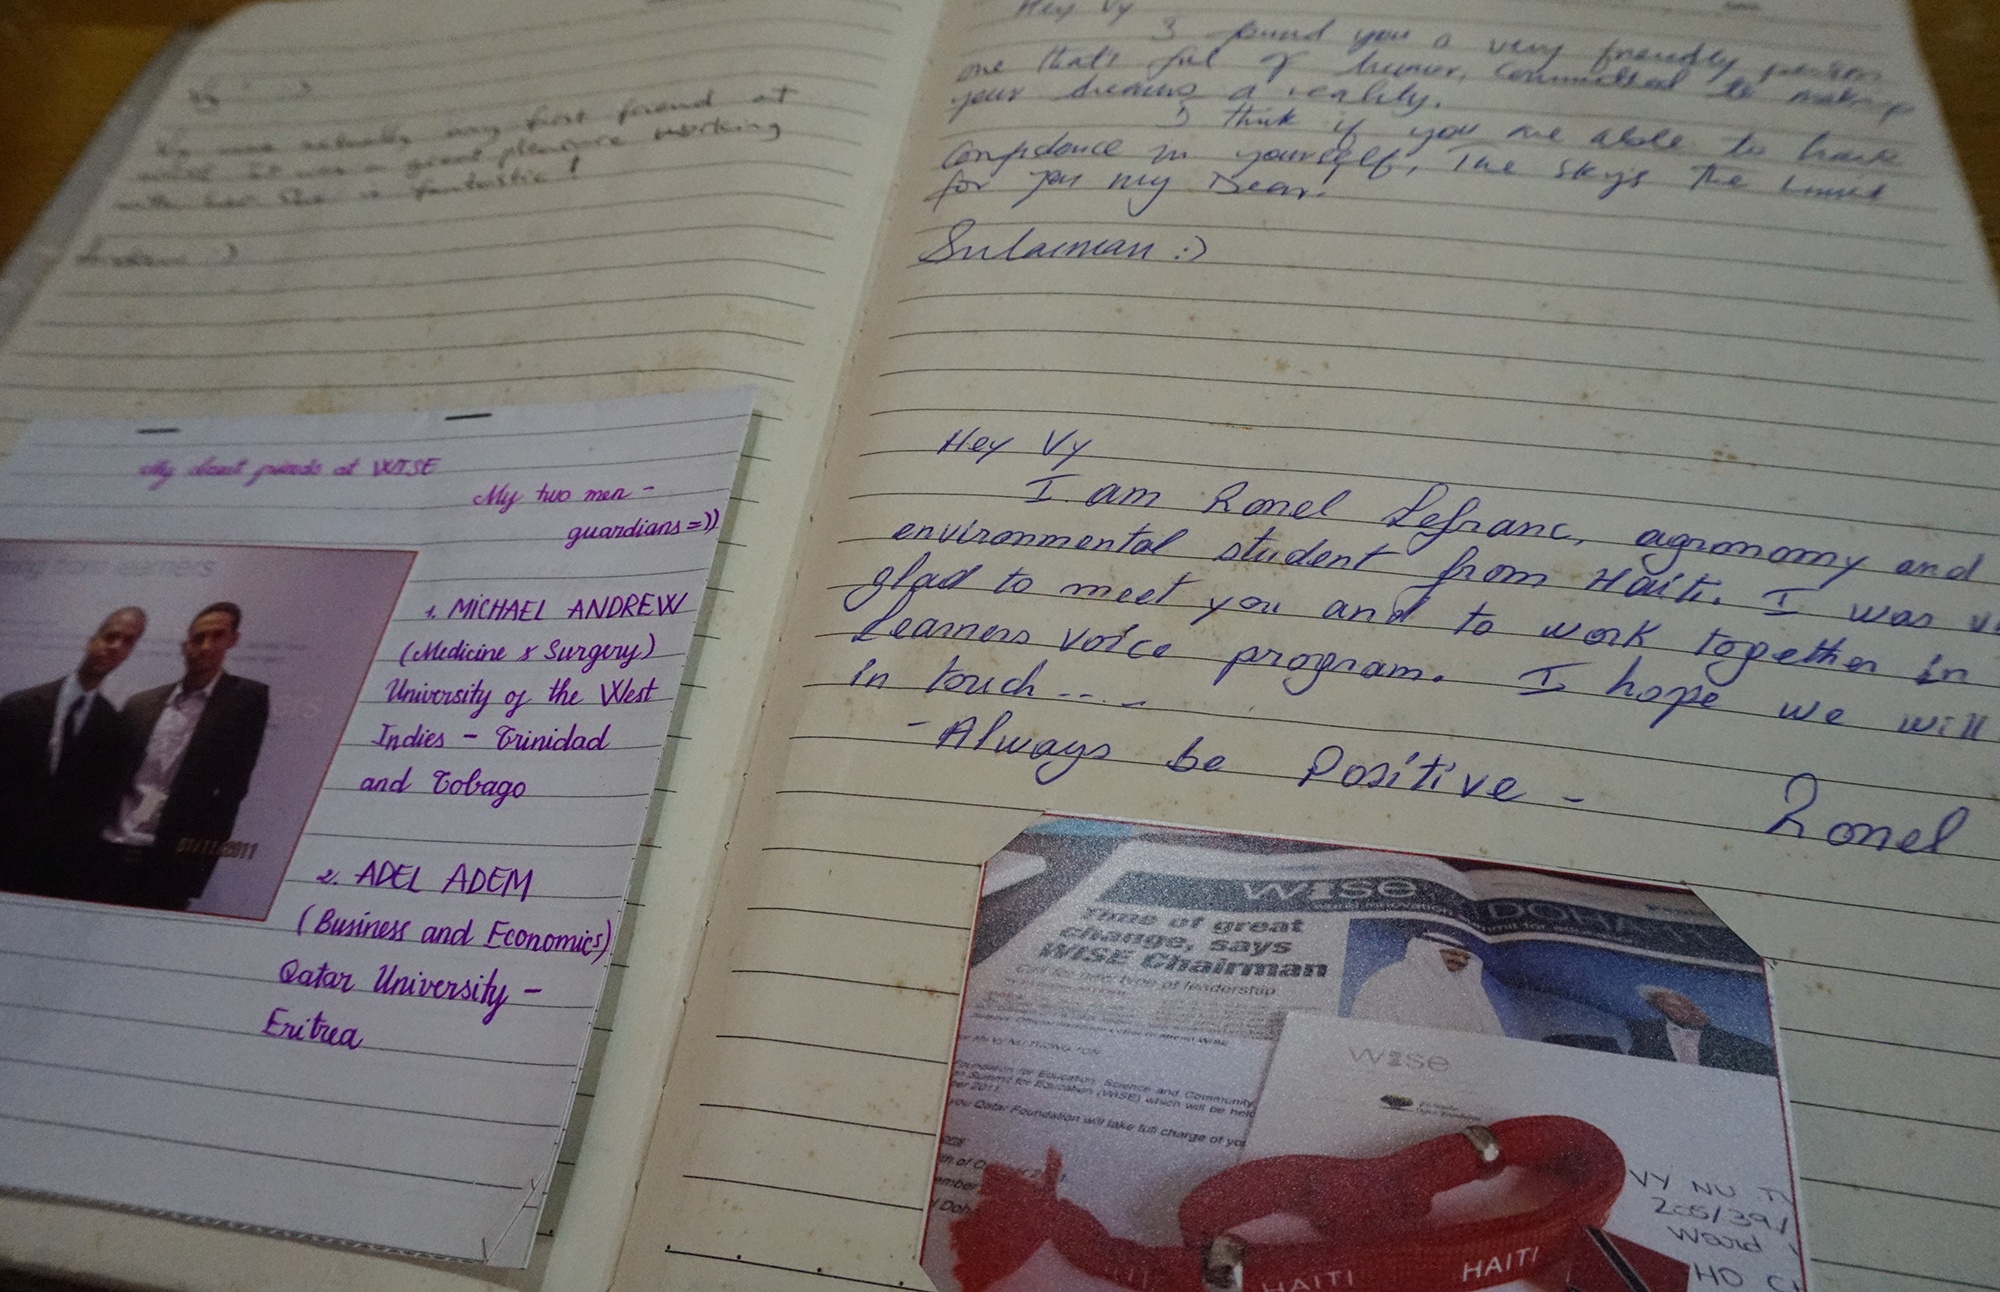 Vy :)
Vy was actually my first friend at
WISE. It was a great pleasure working
with her. She is fantastic!
:)
My closest friends at WISE
My two men -
guardians =))
ing from learners
01/11/2011
1. MICHAEL ANDREW
(Medicine & Surgery)
University of the West
Indies - Trinidad
and Tobago
2. ADEL ADEM
(Business and Economics)
Qatar University -
Eritrea
Hey Vy
I found you a very friendly person
one that's ful of humor, committed to making
your dreams a reality.
I think if you are able to have
confidence in yourself, The sky's The Limit
for you my Dear!
Sulaiman :)
Hey Vy
I am Ronel Lefranc, agronomy and
environmental student from Haiti. I was
glad to meet you and to work together in
Learners voice program. I hope we will
in touch...
- Always be Positive -
Ronel
WISE
DOHA
Time of great
change, says
WISE Chairman
Call for new type of leadership
Foundation for Education, Science and Community
Summit for Education (WISE) which will be held
2011.
you Qatar Foundation will take full charge of
wise
VY NU
205/39
Ward
HO
HAITI
HAITI